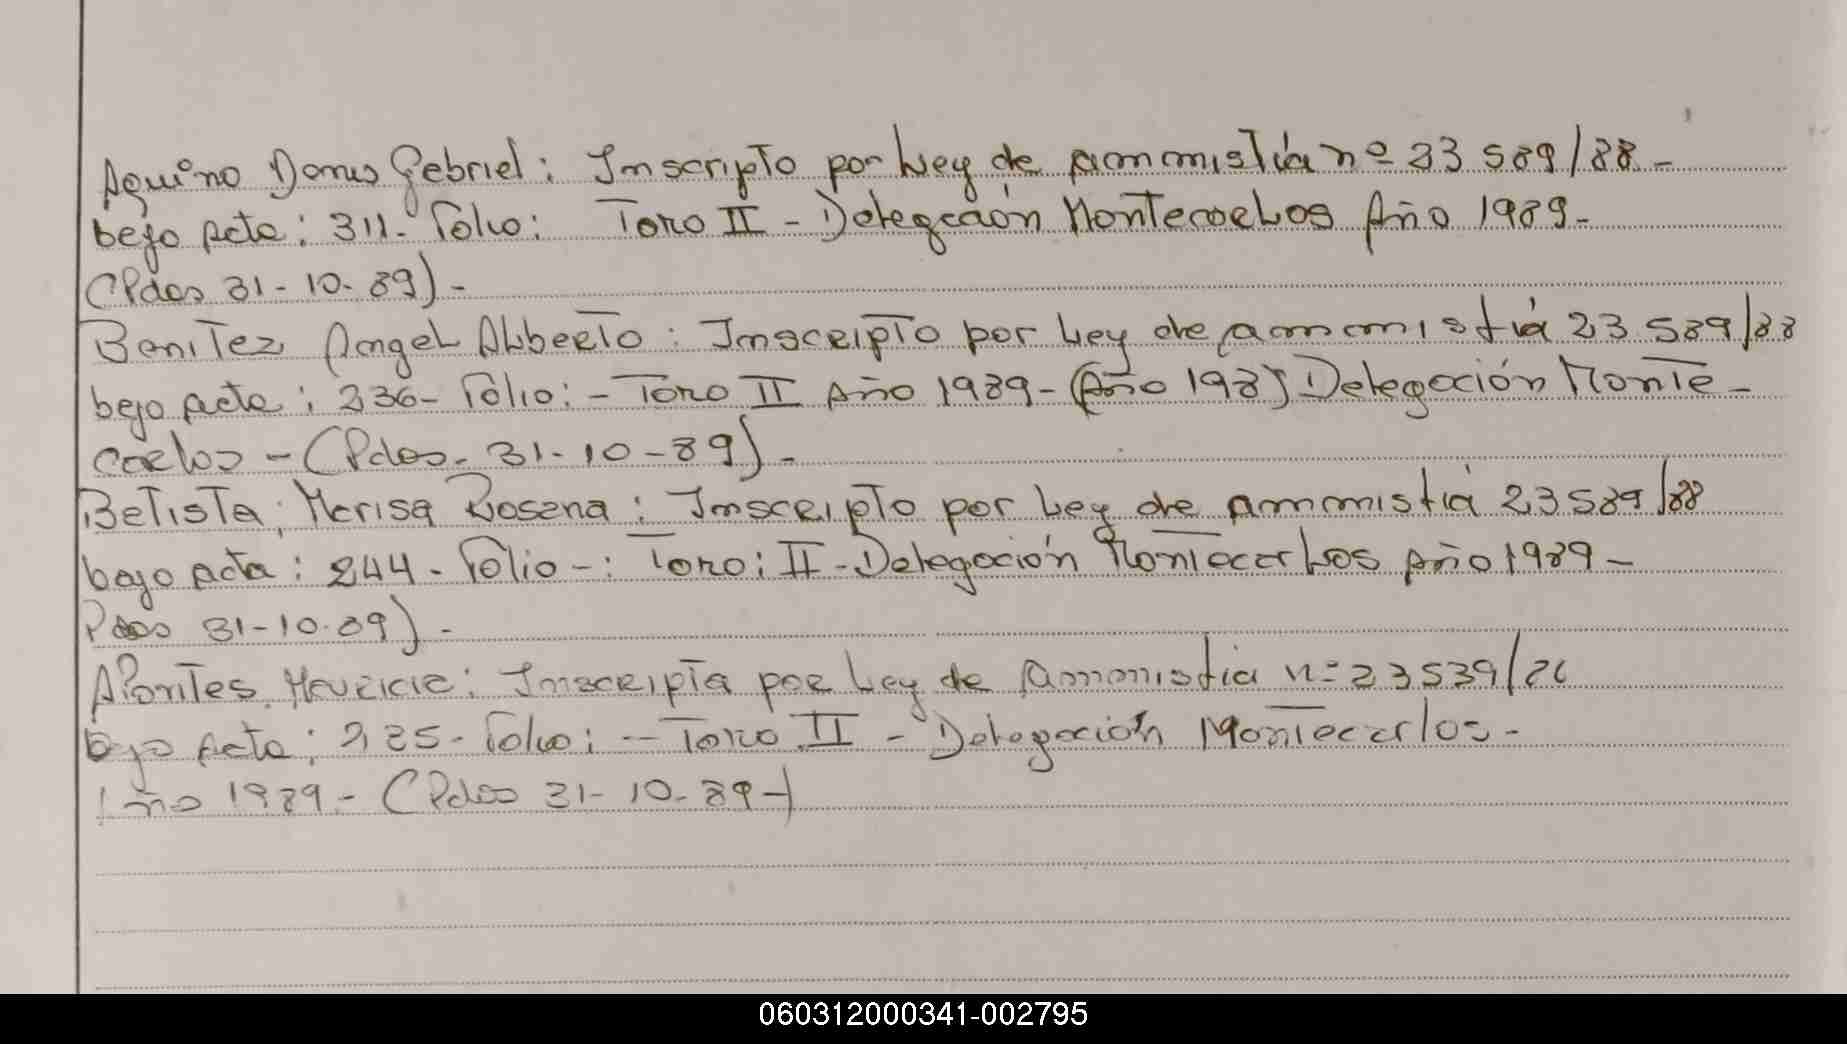 Aquino Gabriel: Inscripto por Ley de ammistia nº 23 589/88-
bajo acta: 311- Folio: Tomo II - Delegación Montecarlos Año 1989-
(Pdos 31-10-89)-
Benitez Angel Alberto: Inscripto por Ley de ammistiá 23 589/88
bajo acta: 236- Folio:- Tomo II Año 1989- (Año 198) Delegación Monte-
carlos - (Pdos- 31-10-89)-
Batista, Marisa Rosana: Inscripto por Ley de ammistiá 23589/88
bajo acta: 244- Folio-: Tomo: II-Delegación Montecarlos Año 1989-
Pdos 31-10-89)-
Aportes Inscripta por Ley de Ammistia n= 23539/
bajo acta: 225- Folio: - Tomo II - Delegación Montecarlos-
Año 1989- (Pdos 31-10-89-)
060312000341-002795